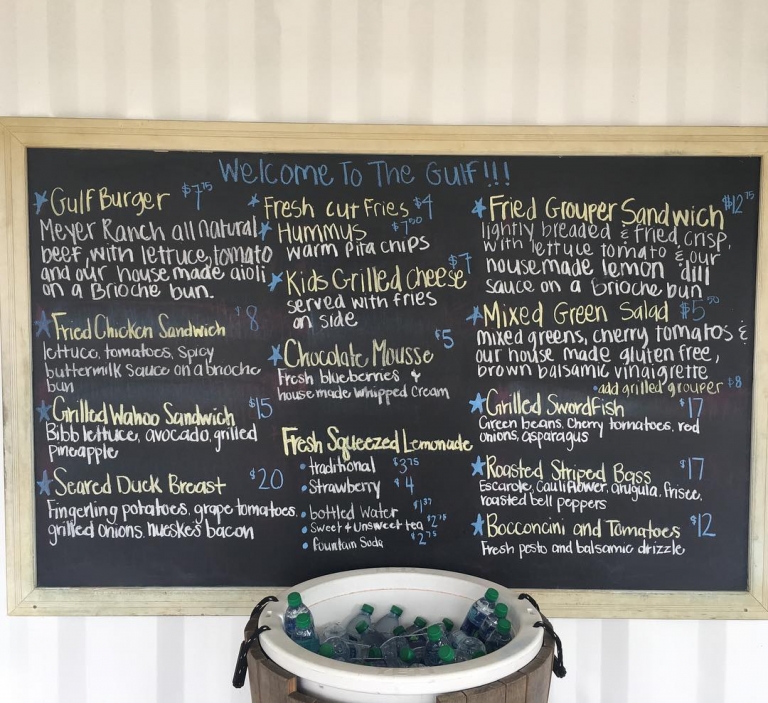 Welcome To The Gulf!!!
Gulf Burger $7.75
Meyer Ranch all natural
beef, with lettuce, tomato
and our house made aioli
on a Brioche bun.
Fried Chicken Sandwich $8
lettuce, tomatoes, spicy
buttermilk sauce on a brioche
bun
Grilled Wahoo Sandwich $15
Bibb lettuce, avocado, grilled
pineapple
Seared Duck Breast $20
Fingerling potatoes, grape tomatoes,
grilled onions, nueske's bacon
Fresh cut Fries $4
Hummus $7.50
warm pita chips
Kids Grilled cheese $7
served with fries
on side
Chocolate Mousse $5
Fresh blueberries &
house made whipped cream
Fresh Squeezed Lemonade
• traditional $3.75
• Strawberry $4
• bottled water $1.37
• Sweet & Unsweet tea $2.75
• fountain Soda $2.75
Fried Grouper Sandwich $12.75
lightly breaded & fried crisp,
with lettuce tomato & our
house made lemon dill
sauce on a Brioche bun
Mixed Green Salad $5.50
mixed greens, cherry tomatoes &
our house made gluten free,
brown balsamic vinaigrette
• add grilled grouper $8
Grilled Swordfish $17
Green beans, Cherry tomatoes, red
onions, asparagus
Roasted Striped Bass $17
Escarole, Cauliflower, arugula, frisee,
roasted bell peppers
Bocconcini and Tomatoes $12
Fresh pesto and balsamic drizzle